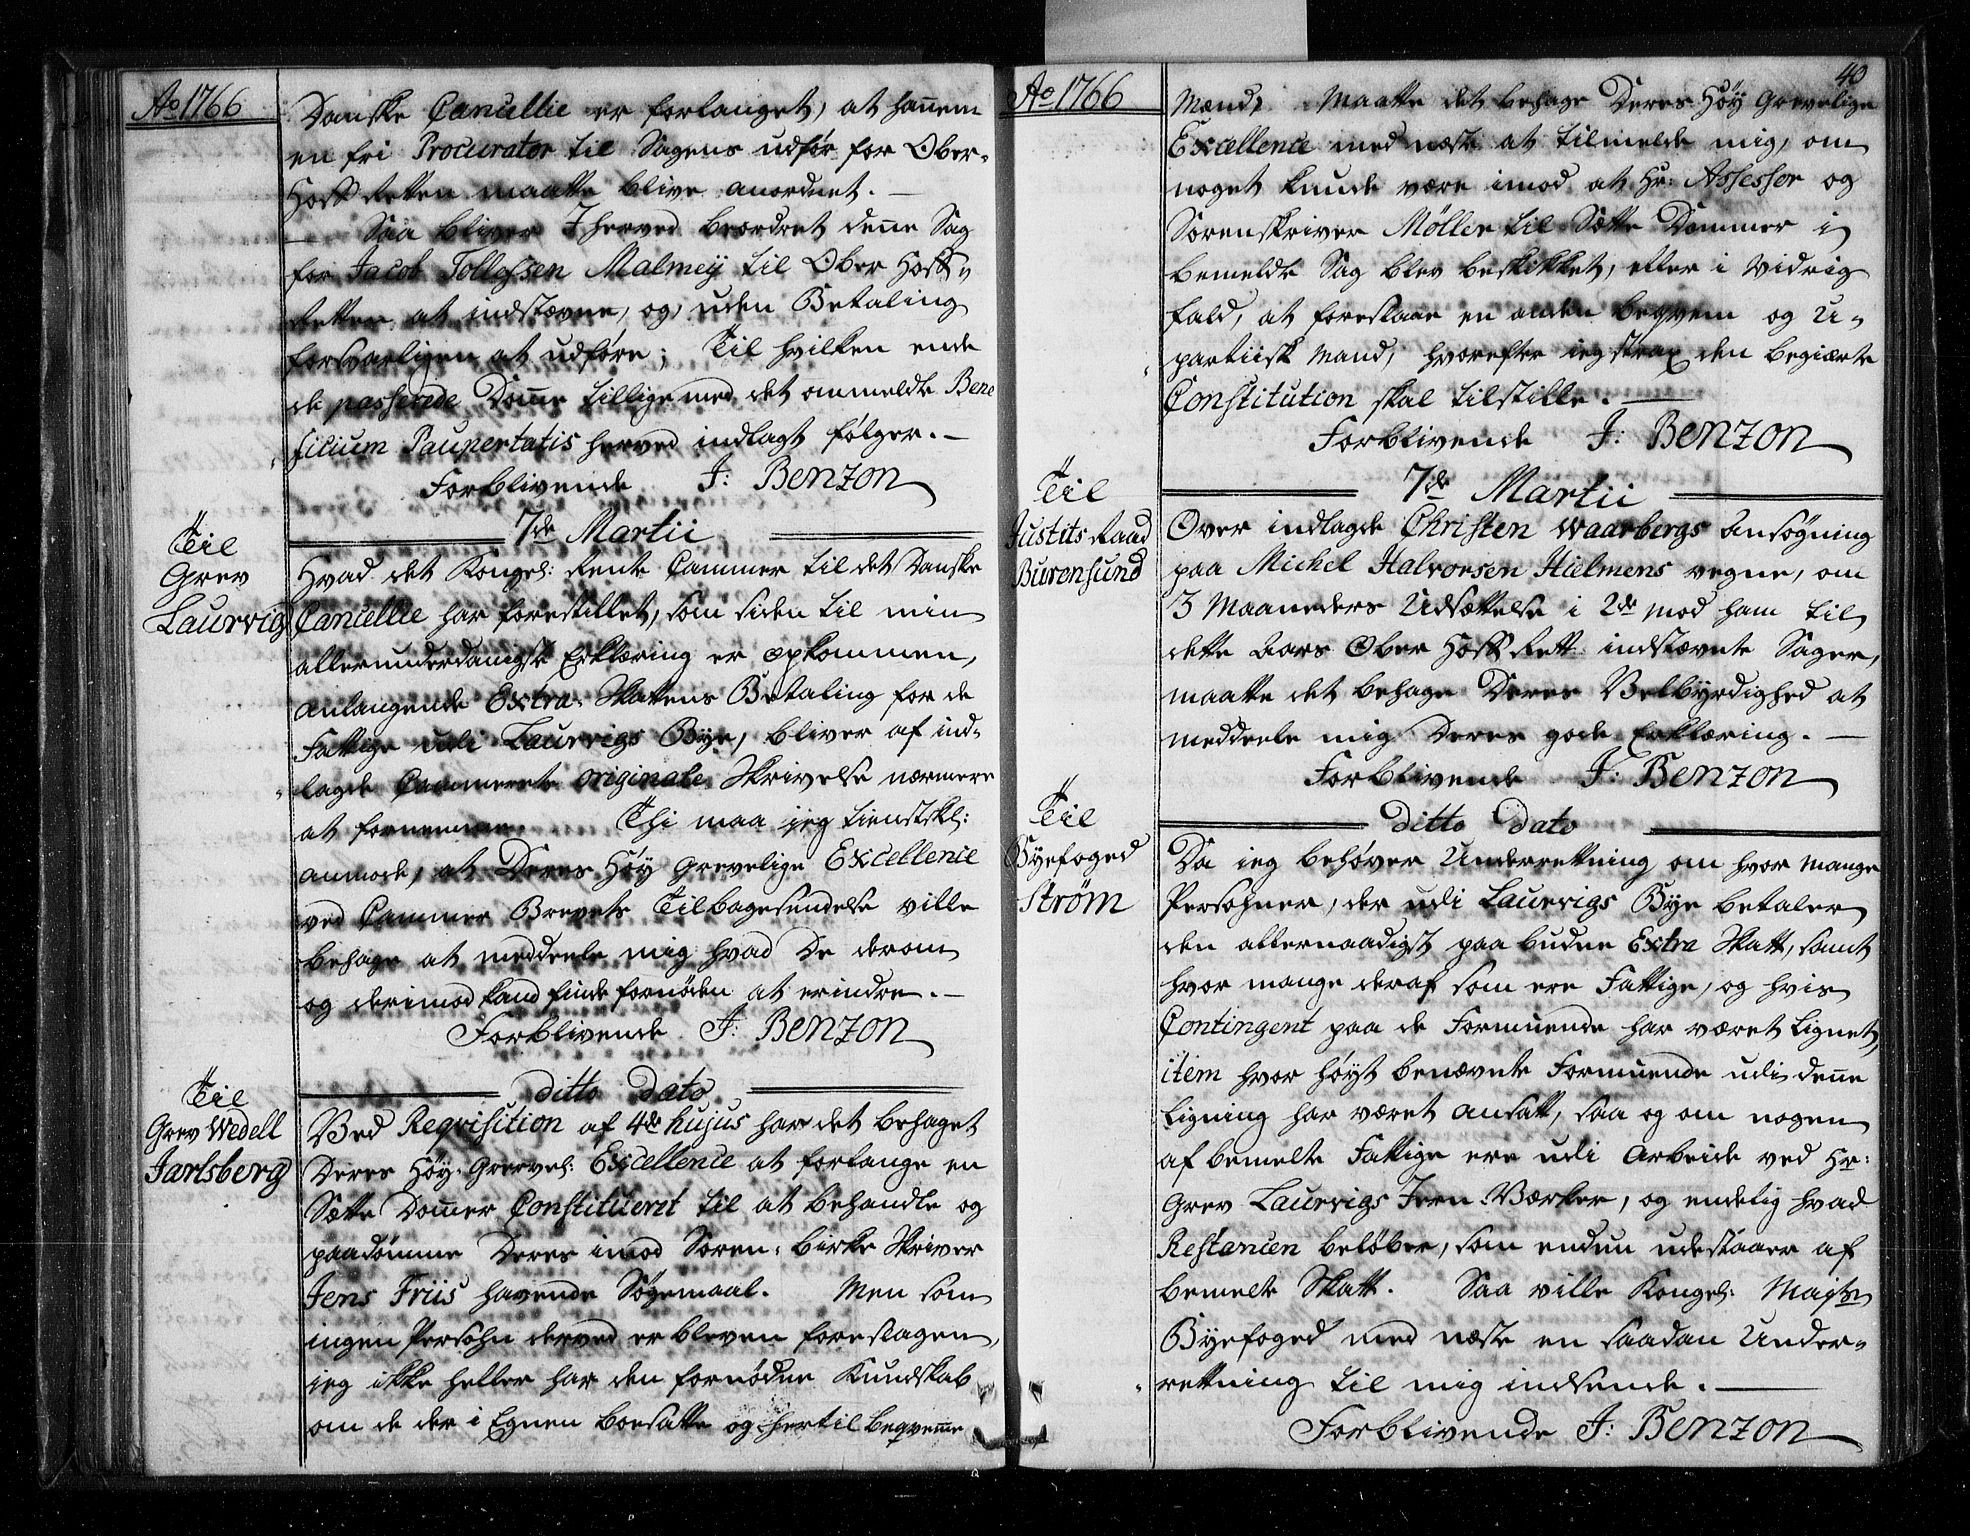 Ao 1766
Danske Cancellie er forlanget, at hannem
en fri Procurator til Sagens udfør for Ober-
Hoff Retten maatte blive anordnet. —
Saa bliver I herved beordret denne Sag
for Jacob Tollefsen Malmey til Ober Hoff-
Retten, at indstævne, og, uden Betaling
forsvarligen at udføre; Til hvilken ende
de passerede Domme tillige med det ommeldte Bene
ficium Paupertatis herved indlagt følger. —
Forblivende J: Benzon
7de Martii
Til
Grev
Laurvig
Hvad det Kongel: Rente Cammer til det Danske
Cancellie har forestillet, som siden til min
allerunderdanigste Erklæring er opkommen,
anlangende Extra-Skattens Betaling for de
Fattige udi Laurvigs Bye, bliver af ind-
lagde Cammerets originale Skrivelse nærmere
at fornemme. Thi maa jeg tienstskl:
anmode, at Deres Høy Grevelige Excellence
ved Cammer Brevets Tilbagesendelse ville
behage at meddeele mig hvad De derom
og derimod kand finde fornøden at erindre. —
Forblivende J: Benzon
ditto dato
Til
Grev Wedell
Jarlsberg
Ved Reqvisition af 4de hujus har det behaget
Deres Høy-Grevel: Excellence at forlange en
Sætte Dommer Constitueret til at behandle og
paadømme Deres imod Soren-Birke Skriver
Jens Friis havende Søgemaal. Men som
ingen Persohn derved er bleven foreslagen,
jeg ikke heller har den fornødne Kundskab
om de der i Egnen boesatte og hertil beqvemme
Ao 1766
40
Mænd, Maatte det behage Deres Høy Grevelige
Excellence med næste at tilmelde mig, om
noget kunde være imod at Hr: Assessor og
Sorenskriver Møller til Sætte Dommer i
bemeldte Sag blev beskikket, eller i vidrig
fald, at foreslaae en anden beqvem og U-
partiisk Mand, hvorefter ieg strax den begiærte
Constitution skal tilstille. —
Forblivende J: Benzon
7de Martii
Til
Justits Raad
Burensund
Over indlagde Christen Waarbergs Ansøgning
paa Michel Halvorsen Hielmens vegne, om
3 Maaneders Udsættelse i 2de mod ham til
dette Aars Ober Hoff Rett indstævnte Sager,
maatte det behage Deres Velbyrdighed at
meddeele mig Deres gode Erklæring. —
Forblivende J: Benzon
ditto dato
Til
Byefoged
Strøm
Da ieg behøver Underrettning om hvor mange
Persohner, der udi Laurvigs Bye betaler
den allernaadigst paabudne Extra Skatt, samt
hvor mange deraf som ere Fattige, og hvis
Contingent paa de Formuende har været lignet,
item hvor høyt benævnte Formuende udi denne
Ligning har været ansatt, saa og om nogen
af bemelte Fattige ere udi Arbeide ved Hr:
Grev Laurvigs Jern-Værker, og endelig hvad
Restancen beløber, som endnu udestaaer af
bemelte Skatt. Saa ville Kongel: Majts
Byefoged med næste en saadan Under-
rettning til mig indsende. —
Forblivende J: Benzon